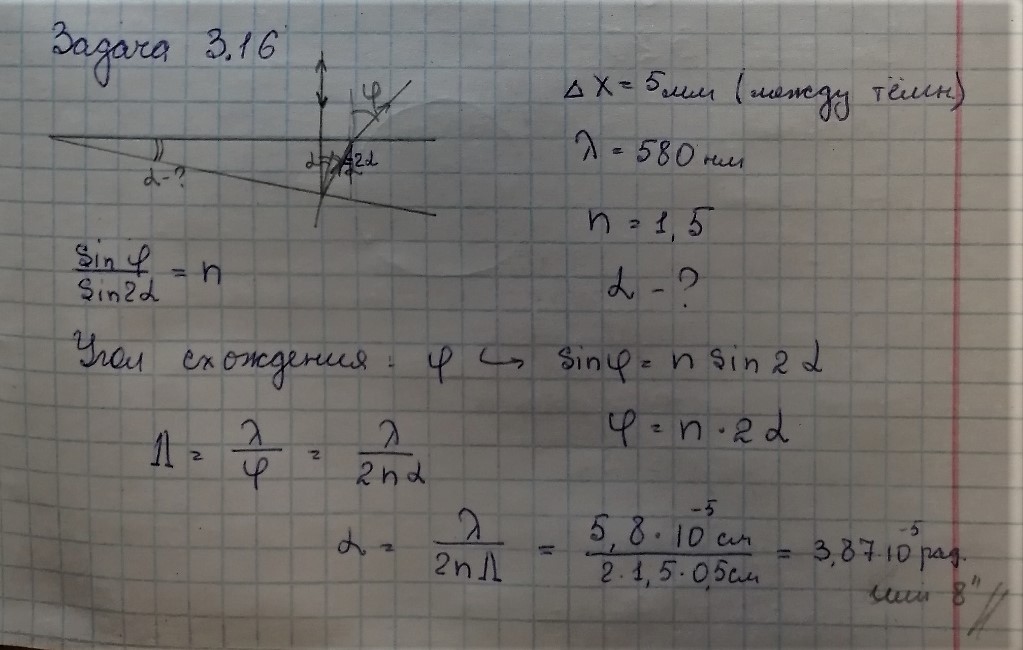 Задача 3.16
Δx = 5мм (между тёмн)
φ
λ = 580 нм
α 2α
α-?
n = 1,5
sin φ / sin 2α = n
α - ?
Угол схождения: φ ↪ sinφ = n sin 2α
φ = n · 2α
Λ = λ / φ = λ / 2nα
α = λ / 2nΛ = 5,8 · 10⁻⁵ см / 2 · 1,5 · 0,5см = 3,87·10⁻⁵ рад.
или 8"